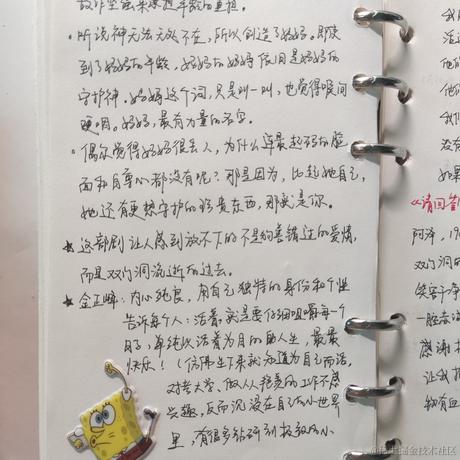 听说神无法无处不在,所以创造了妈妈。即使
到了妈妈的年龄,妈妈的妈妈依旧是妈妈的
守护神。妈妈这个词,只是叫一叫,也觉得喉间
哽咽。妈妈,最有力量的名字。
偶尔觉得妈妈很丢人,为什么连最起码的脸
面和自尊心都没有呢?那是因为,比起她自己,
她还有更想守护的珍贵东西,那就是你。
★这部剧让人感到放不下的不是狗善错过的爱情,
而是双门洞流逝的过去。
★金正峰:内心纯良,用自己独特的身份和个性
告诉每个人:活着,就是要仔细咀嚼每一个
日子,单纯以活着为目的的人生,最最
快乐!(仿佛生下来就知道为自己而活,
对考大学、做人人艳羡的工作不感
兴趣,反而沉浸在自己的小世界
里,有很多钻研到极致的小
我
活
他们
他们
我们
如果
《请回答
阿泽,19
双门洞的
一脸
感谢
让我